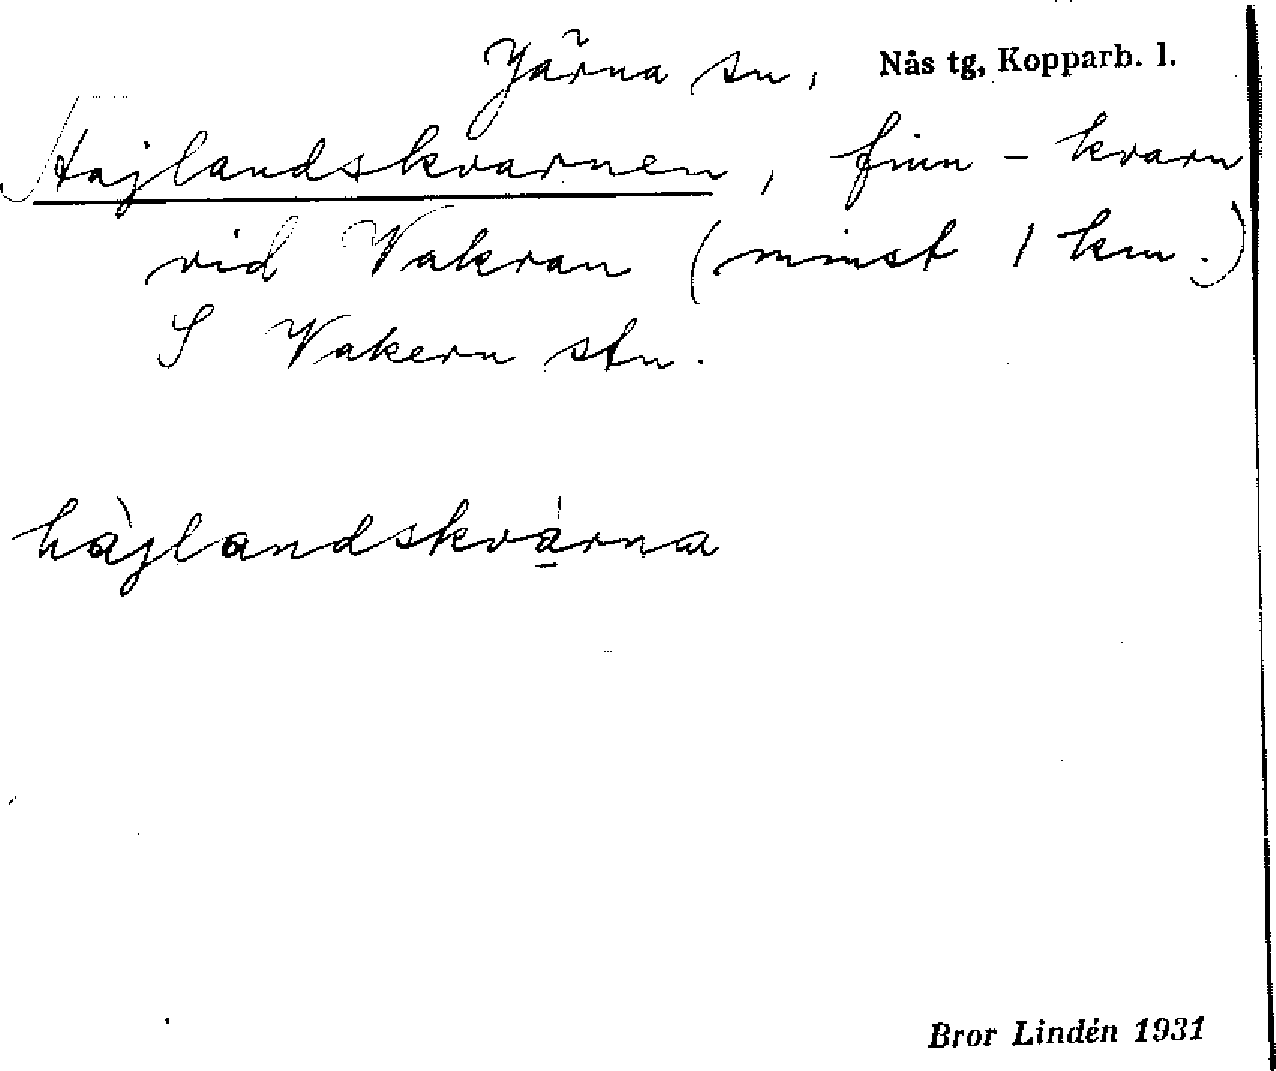 Järna sn, Nås tg, Kopparb. l.
Hajlandskvarnen, finn-kvarn
vid Vakran (minst 1 km.)
S Vakern stn.
hàjlandskvá̱rna
Bror Lindén 1931